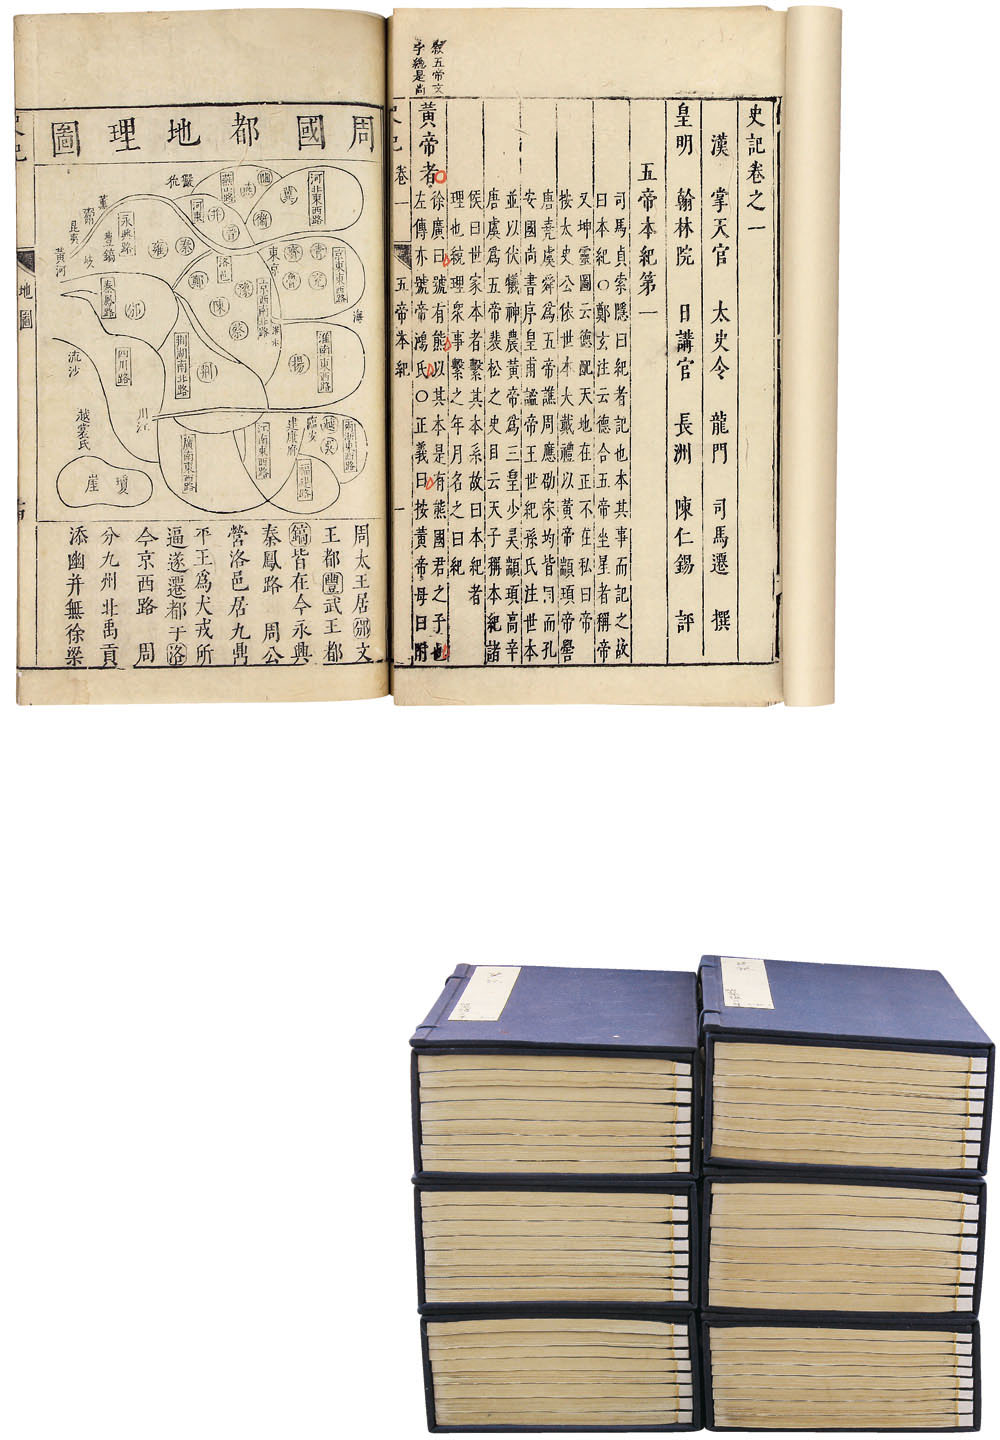 史記卷之一
漢 掌天官 太史令 龍門 司馬遷 撰
皇明 翰林院 日講官 長洲 陳仁錫 評
五帝本紀第一
司馬貞索隱曰紀者記也本其事而記之故
曰本紀○鄭玄注云德合五帝坐星者稱帝
又坤靈圖云德配天地在正不在私曰帝
按太史公依世本大戴禮以黃帝顓頊帝嚳
唐堯虞舜爲五帝譙周應劭宋均皆同而孔
安國尚書序皇甫謐帝王世紀孫氏注世本
並以伏犧神農黃帝爲三皇少昊顓頊高辛
唐虞爲五帝裴松之史目云天子稱本紀諸
侯曰世家本者繫其本系故曰本紀者
理也統理衆事繫之年月名之曰紀
黃帝者
徐廣曰號有熊以其本是有熊國君之子也
左傳亦號帝鴻氏○正義曰按黃帝母曰附
敘五帝文
字總是尚
卷一
五帝本紀
一
周國都地理圖
河北東西路
燕山路
冀
幽
燕
并
晉
衛
河東
獫
狁
葷
粥
昆夷
岐
黃河
豐鎬
永興路
雍
秦
洛邑
東京
齊
青
魯
兗
京東東西路
海
鄭
豫
陳
蔡
京西南北路
淮水
淮南東西路
揚
秦鳳路
邠
四川路
荆湖南北路
荆
流沙
越裳氏
川江
廣南東西路
江南東西路
建康府
臨安
越
吳
兩浙東西路
福建路
瓊
崖
周太王居邠文
王都豐武王都
鎬皆在今永興
秦鳳路 周公
營洛邑居九鼎
平王爲犬戎所
逼遂遷都于洛
今京西路 周
分九州北禹貢
添幽并無徐梁
地圖